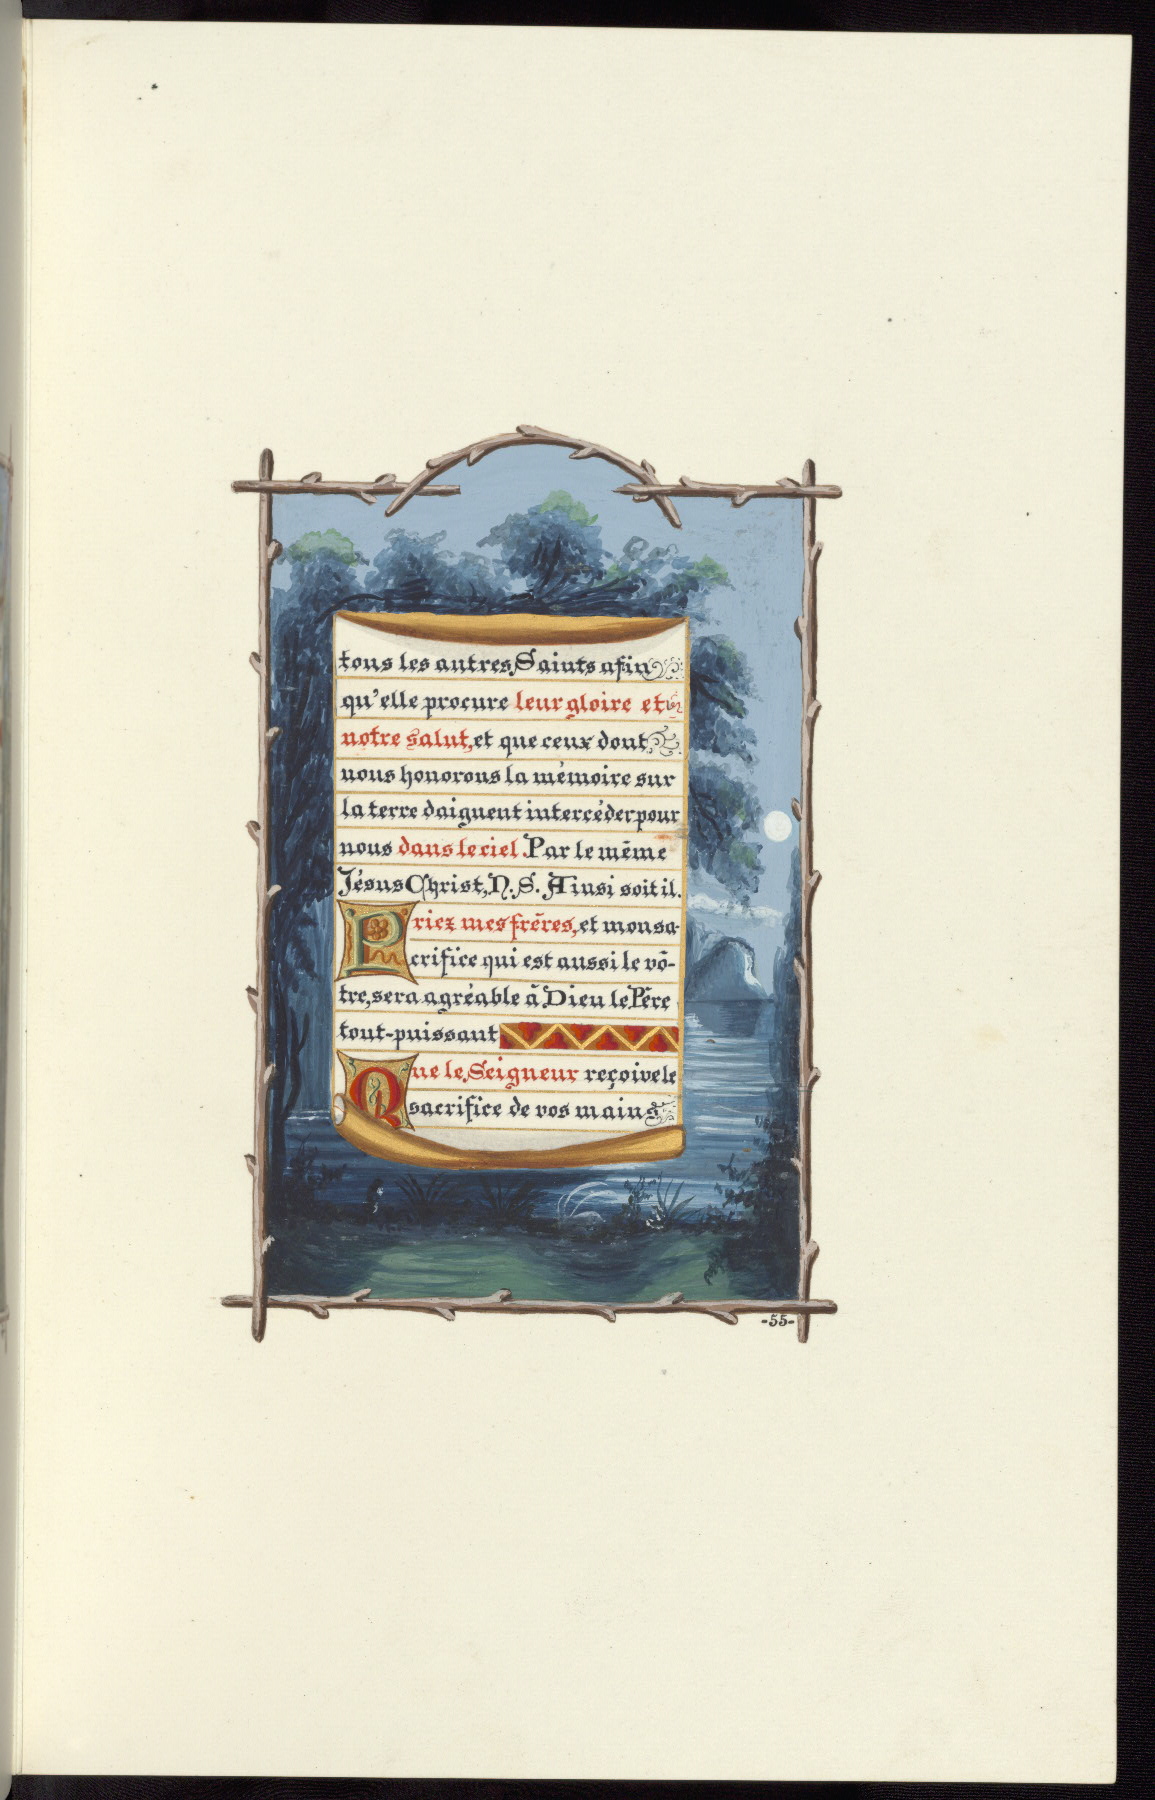 tous les autres Saints afin
qu'elle procure leur gloire et
notre salut, et que ceux dont
nous honorons la mémoire sur
la terre daignent intercéder pour
nous dans le ciel. Par le même
Jésus Christ, N. S. Ainsi soit il.
Priez mes frères, et mon sa-
crifice qui est aussi le vô-
tre, sera agréable à Dieu le Père
tout-puissant
Que le Seigneur reçoive le
sacrifice de vos mains
-55-